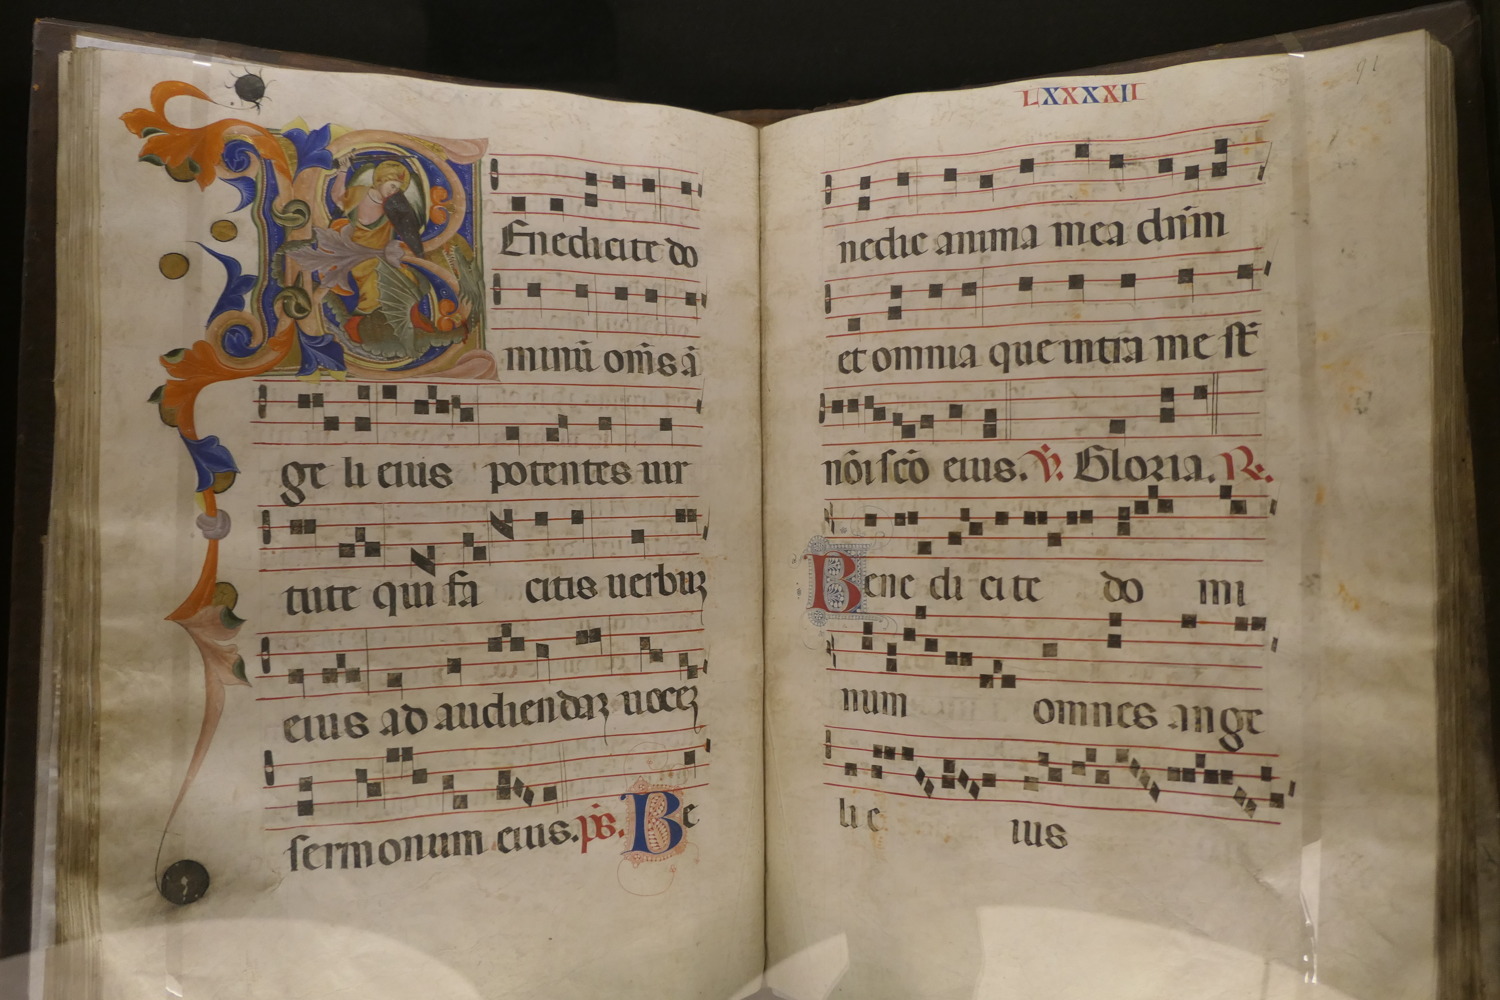 BEnedicite do
minū om̄s ā
ge li eius potentes uir
tute qui fa citis uerbuꝫ
eius ad audiendaꝫ uoceꝫ
sermonum eius. ps. Be
LXXXXII
91
nedic anima mea dn̄m
et omnia que intra me st̄
nōi scō eius. V. Gloria. R.
Bene di ci te do mi
num omnes ange
li e ius